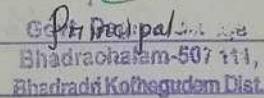 Principal
Bhadrachalam-507 111,
Bhadradri Kothegudem Dist.